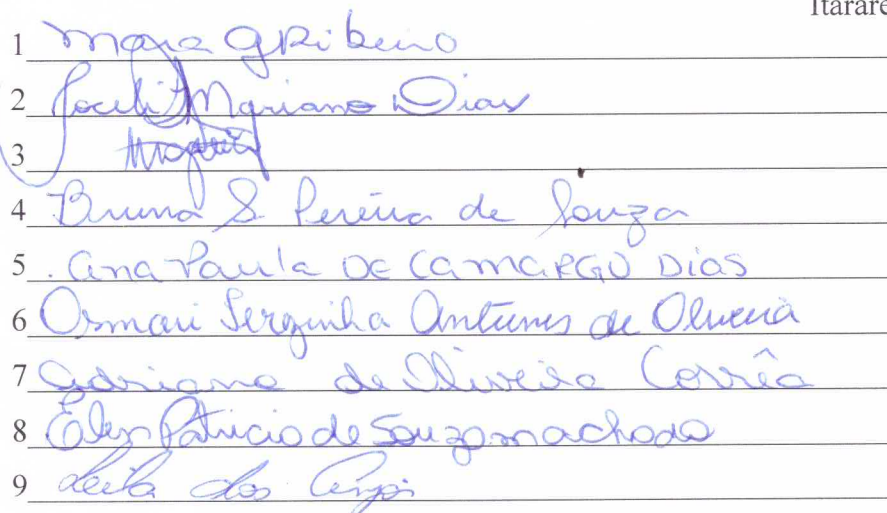 Itararé
1 Mara G Ribeiro
2 Joceli Mariano Dias
3
4 Bruna S. Pereira de Souza
5 . Ana Paula DE CAMARGO DIAS
6 Osmari Serginha Antunes de Oliveira
7 Adriana de Oliveira Corrêa
8 Elen Patricia de Souza machado
9 Leila dos Anjos